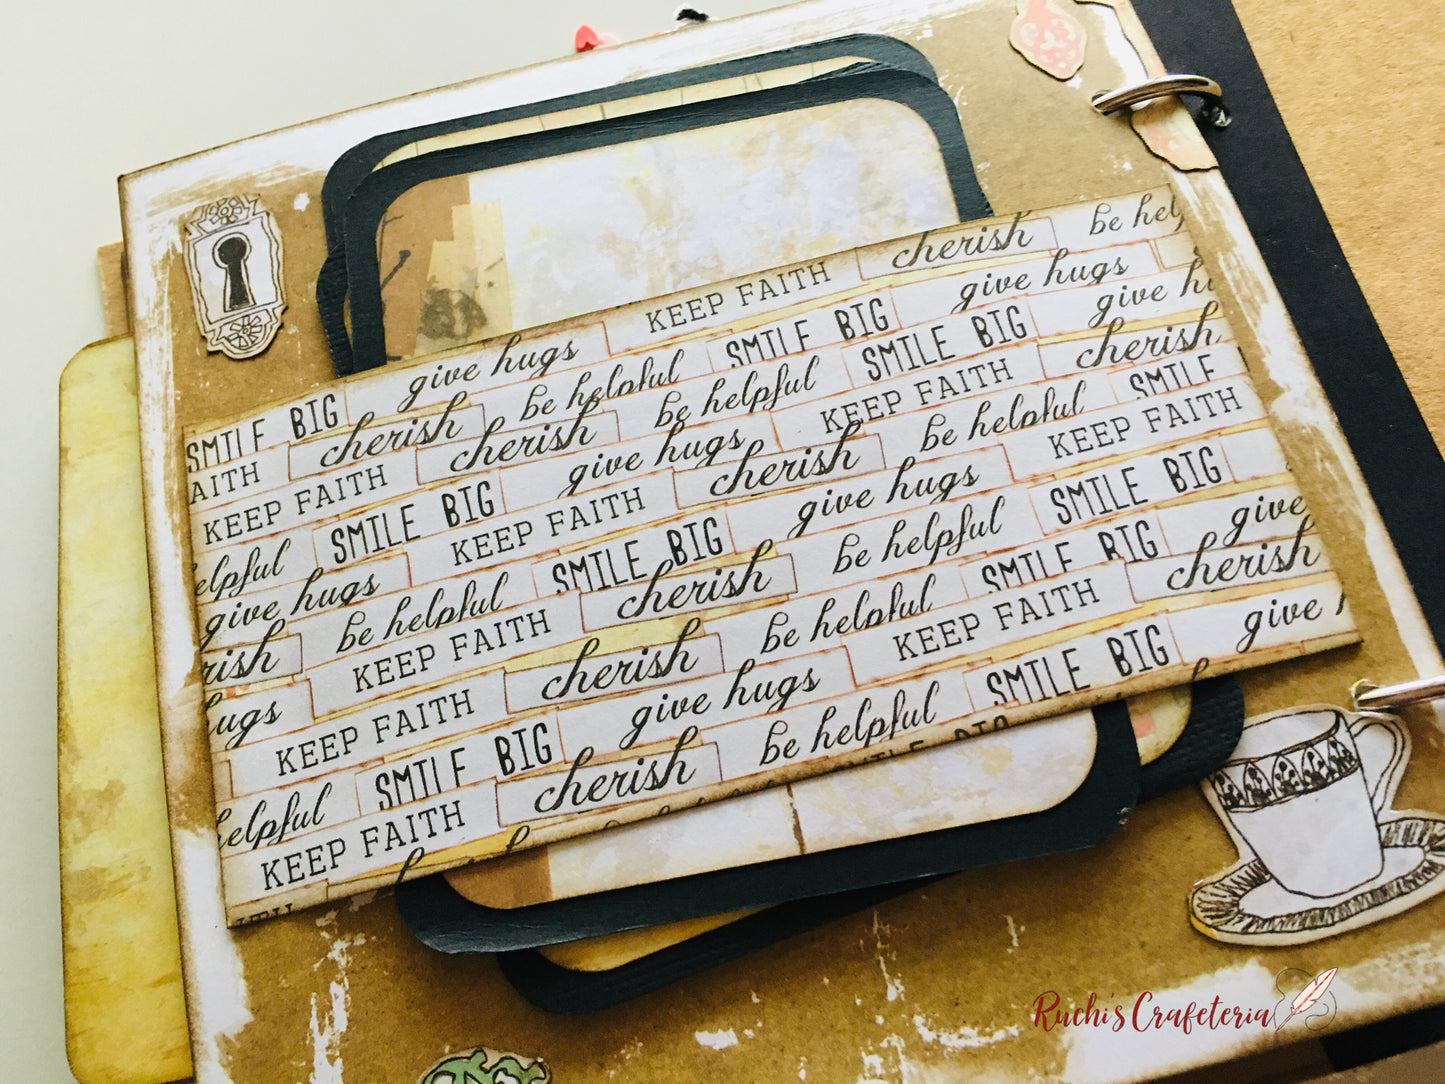 SMILE BIG give hugs KEEP FAITH cherish be help
AITH cherish be helpful SMILE BIG give hugs
KEEP FAITH cherish be helpful SMILE BIG give hu
elpful SMILE BIG give hugs KEEP FAITH cherish
give hugs KEEP FAITH cherish be helpful SMILE
rish be helpful SMILE BIG give hugs KEEP FAITH
ugs KEEP FAITH cherish be helpful SMILE BIG
KEEP FAITH cherish be helpful SMILE BIG give
elpful SMILE BIG give hugs KEEP FAITH cherish
KEEP FAITH cherish be helpful SMILE BIG give
Ruchi's Crafeteria